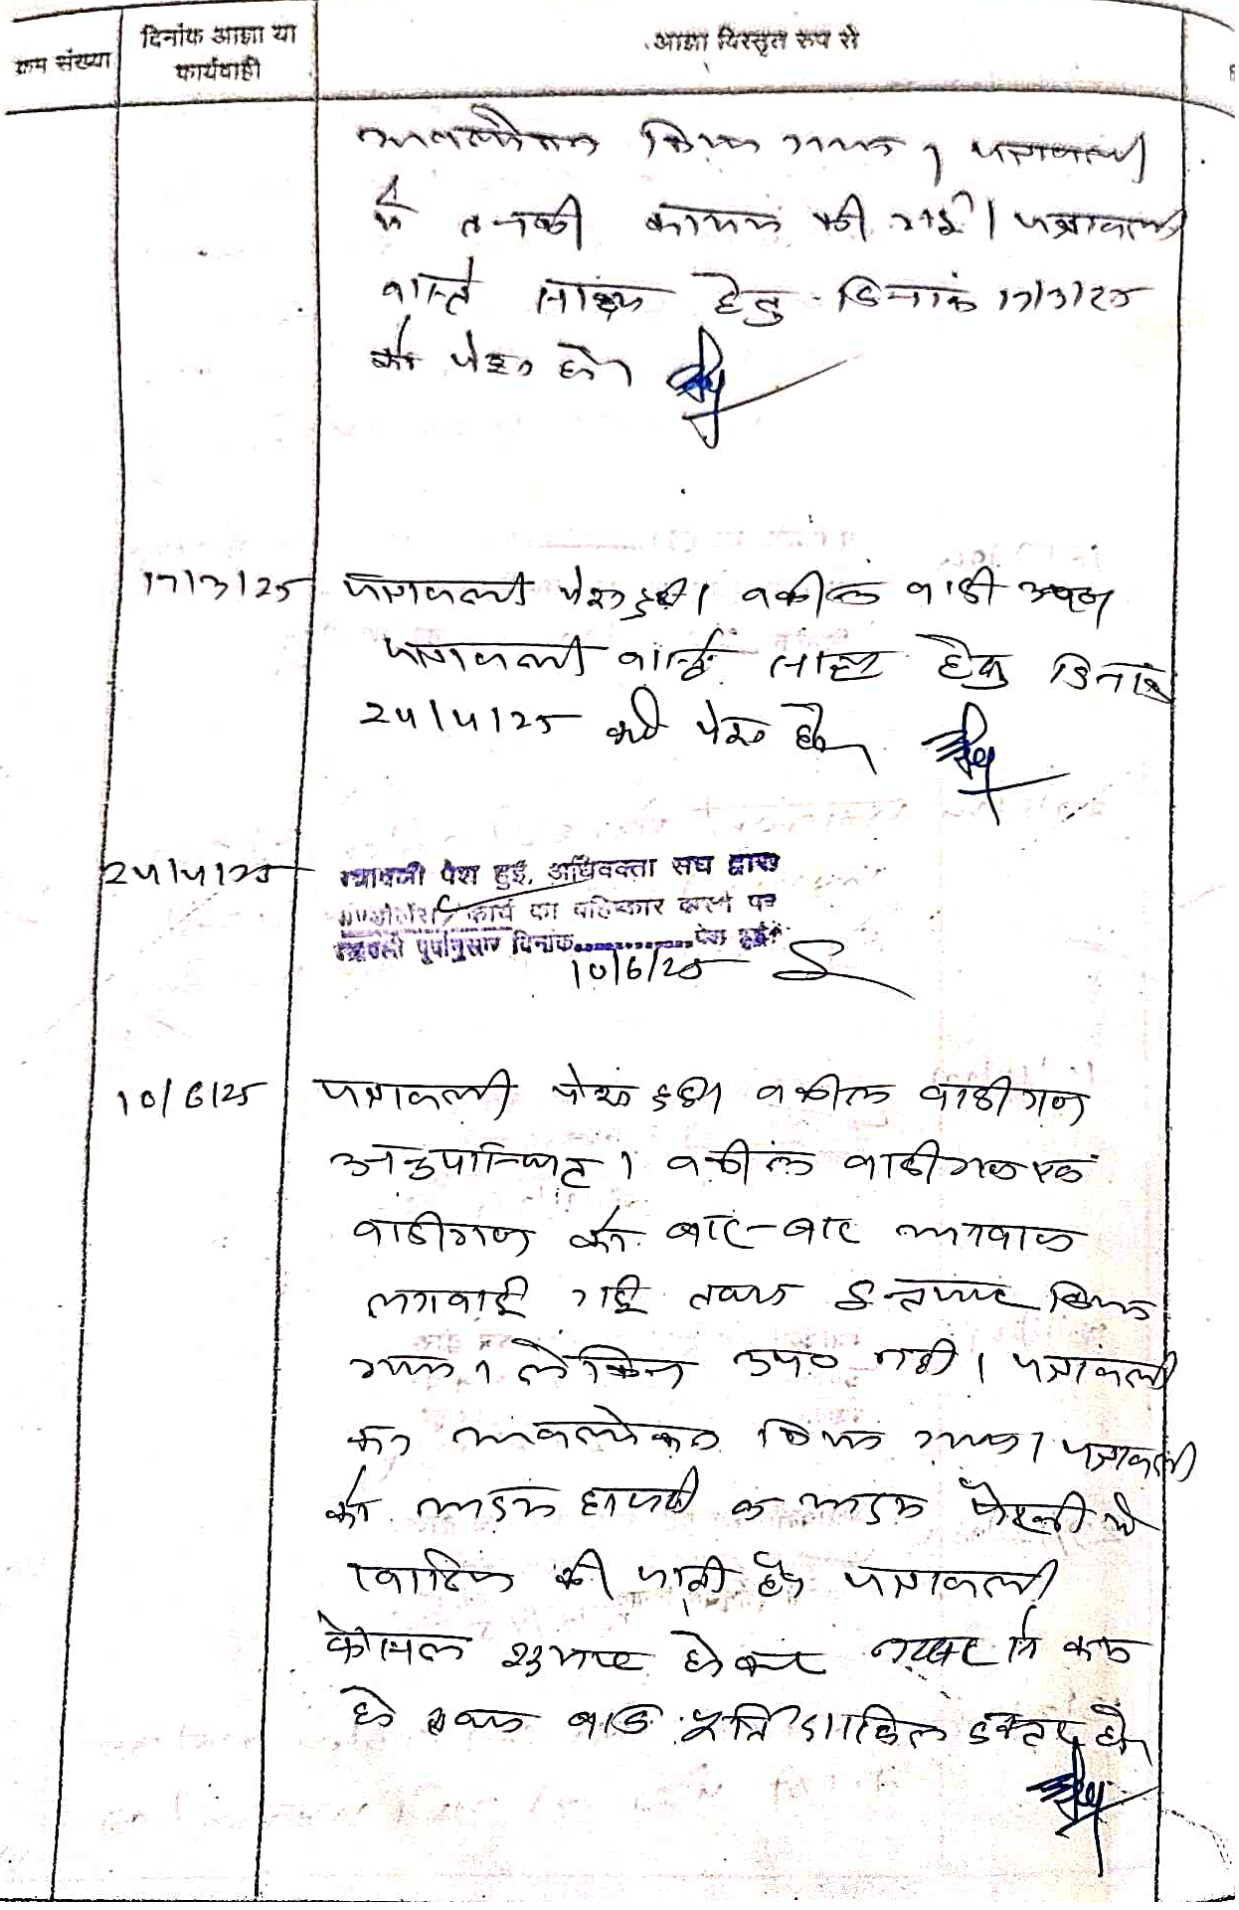 क्रम संख्या
दिनांक आज्ञा या
कार्यवाही
आज्ञा विस्तृत रूप से
अवलोकन किया गया। पत्रावली
में तनकी कायम की गई। पत्रावली
वास्ते साक्ष्य हेतु दिनांक 17/3/25
को पेश हो।
17/3/25 पत्रावली पेश हुई। वकील वादी उप०
पत्रावली वास्ते साक्ष्य हेतु दिनांक
24/4/25 को पेश हो।
24/4/25 पत्रावली पेश हुई, अधिवक्ता संघ द्वारा
कार्य का बहिष्कार करने पर
पत्रावली पूर्वानुसार दिनांक............पेश हुई।
10/6/25
10/6/25 पत्रावली पेश हुई। वकील वादीगण
अनुपस्थित। वकील वादीगण एवं
वादीगण को बार-बार आवाज
लगवाई गई तथा इन्तजार किया
गया। लेकिन उप० नहीं। पत्रावली
का अवलोकन किया गया। पत्रावली
को अदम हाजरी व अदम पैरवी में
खारिज की जाती है। पत्रावली
फैसल शुमार होकर नम्बर से कम
हो बाद दाखिल दफ्तर हो।